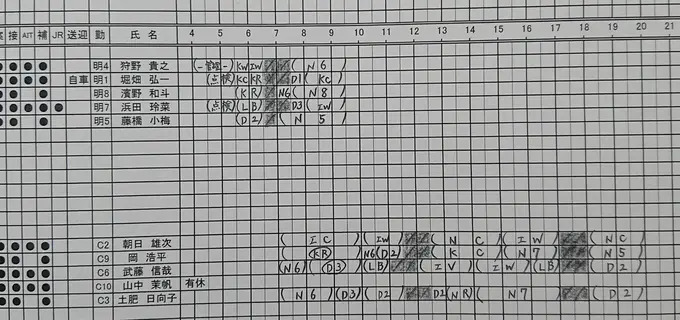 接 AIT 補 JR 送迎 勤 氏 名 4 5 6 7 8 9 10 11 12 13 14 15 16 17 18 19 20 21
明4 狩野 貴之 (-管理-) KW IW ( N 6 )
自車 明1 堀畑 弘一 (点検) KC KR D1 ( KC )
明8 濱野 和斗 ( K R ) N6 ( N 8 )
明7 浜田 玲菜 (点検) ( L B ) D3 ( IW )
明5 藤橋 小梅 ( D 2 ) ( N 5 )
C2 朝日 雄次 ( I C ) ( IW ) ( N C ) ( I W ) ( N C )
C9 岡 浩平 ( KR ) N6 (D2) ( K C ) ( N 7 ) ( N 5 )
C6 武藤 信哉 (N6) ( D3 ) (LB) ( I V ) ( I W ) (LB) ( D 2 )
C10 山中 茉帆 有休
C3 土肥 日向子 ( N 6 ) (D3) ( D2 ) D2 (NR) ( N 7 ) ( D 2 )